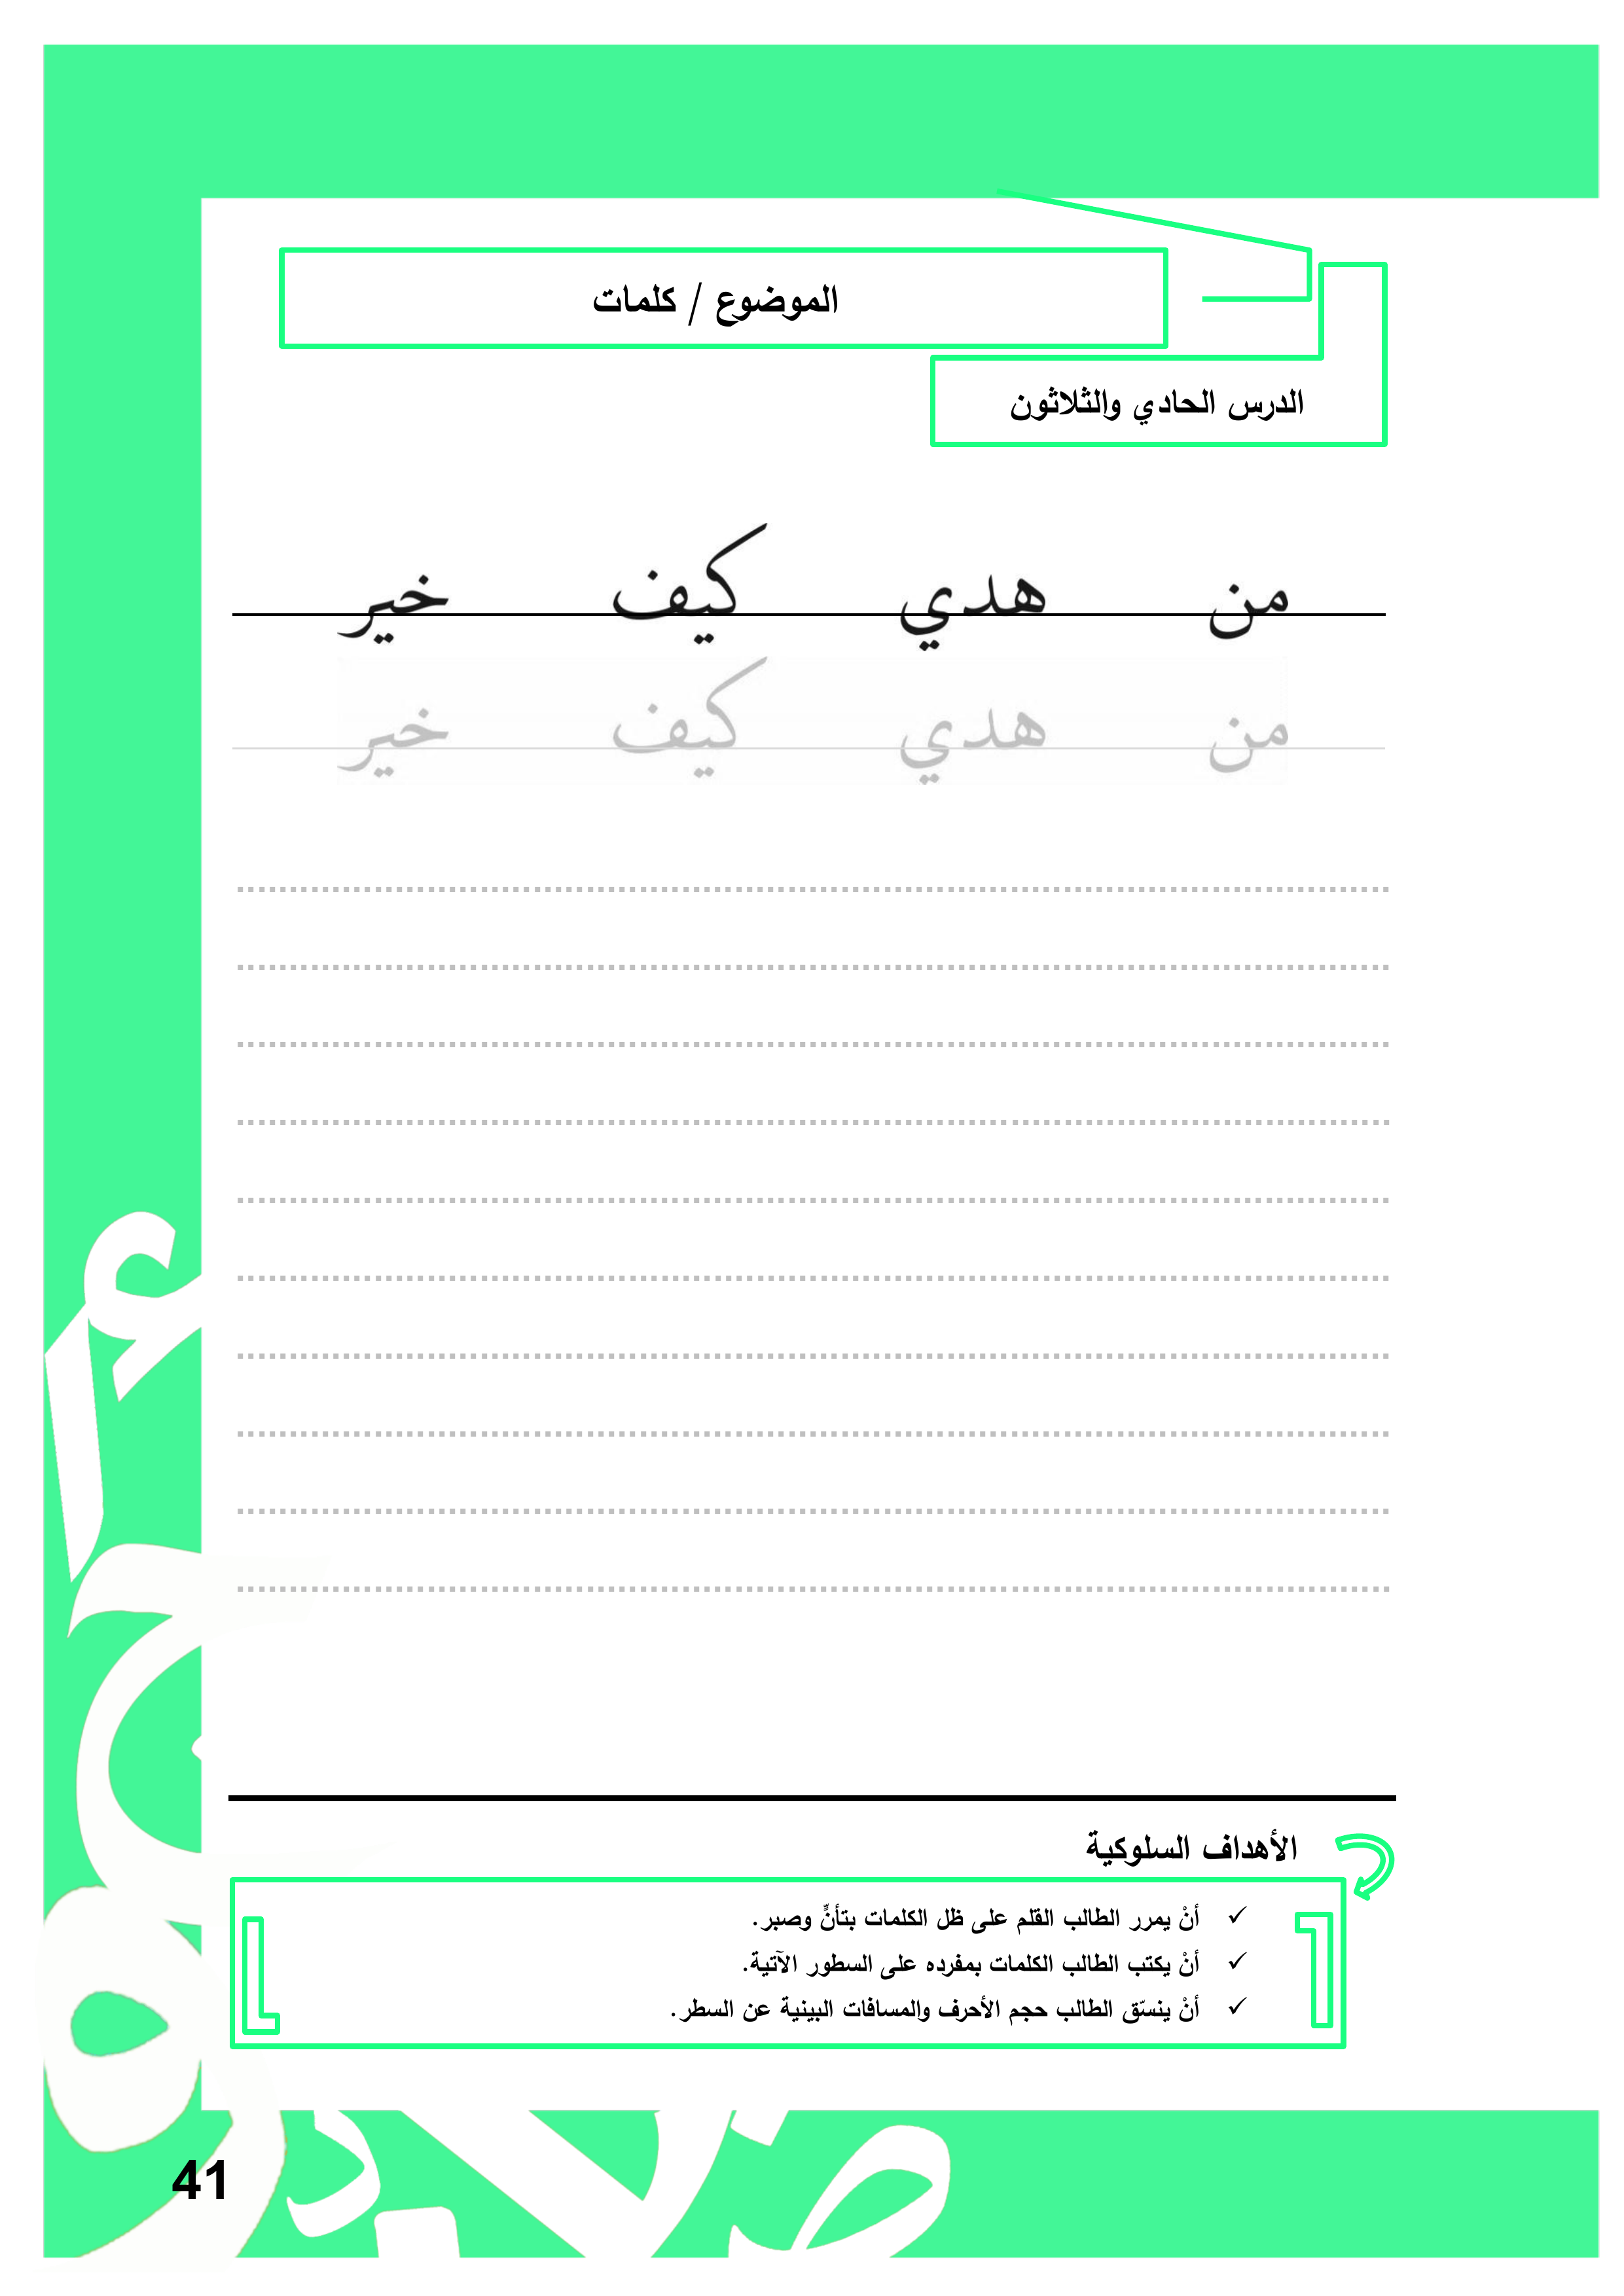 الموضوع / كلمات
الدرس الحادي والثلاثون
من هدي كيف خير
من هدي كيف خير
الأهداف السلوكية
✓ أنْ يمرر الطالب القلم على ظل الكلمات بتأنٍّ وصبر.
✓ أنْ يكتب الطالب الكلمات بمفرده على السطور الآتية.
✓ أنْ ينسّق الطالب حجم الأحرف والمسافات البينية عن السطر.
41